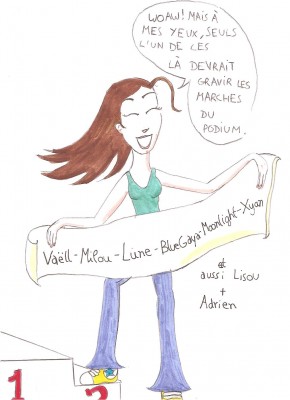 WOAW! MAIS À
MES YEUX, SEULS
L'UN DE CES
LÀ DEVRAIT
GRAVIR LES
MARCHES
DU
PODIUM.
Vaëll-Milou-Lune-BlueGaya-Moonlight-Xyan
et
aussi Lisou
+
Adrien
1
2